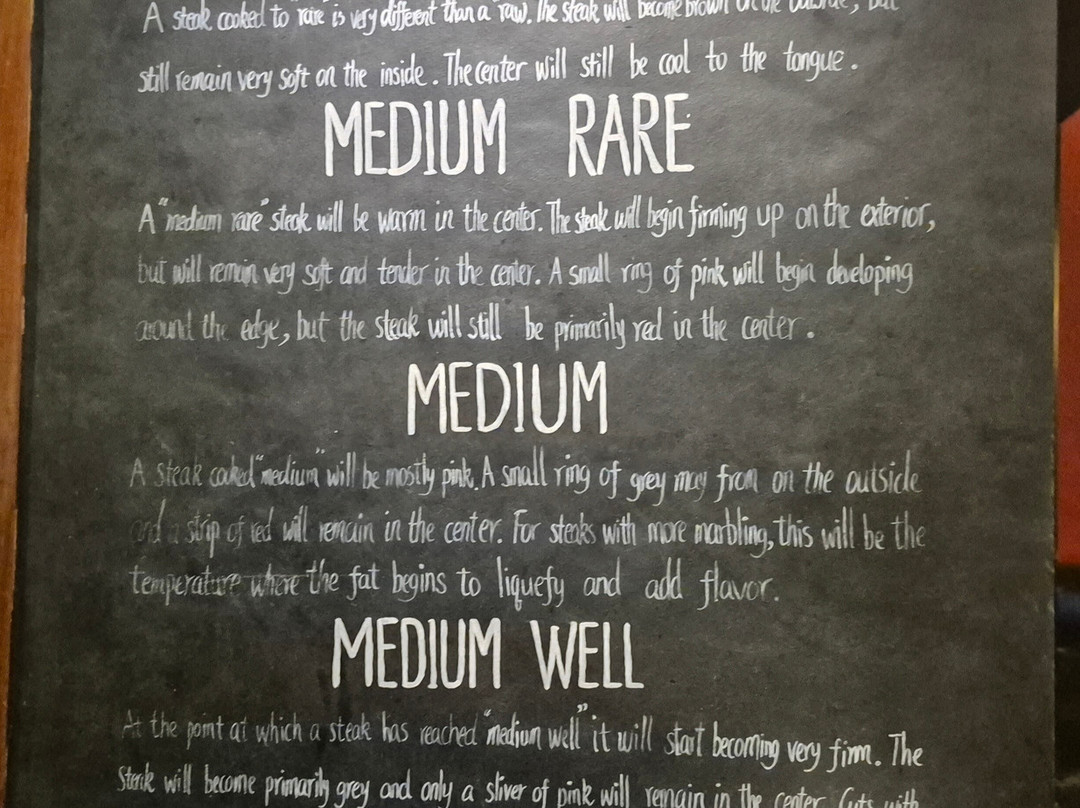 A steak cooked to "rare is very different than a "raw. The steak will become brown on the outside, but
still remain very soft on the inside. The center will still be cool to the tongue.
MEDIUM RARE
A "medium rare" steak will be warm in the center. The steak will begin firming up on the exterior,
but will remain very soft and tender in the center. A small ring of pink will begin developing
around the edge, but the steak will still be primarily red in the center.
MEDIUM
A steak cooked "medium" will be mostly pink. A small ring of grey may from on the outside
and a strip of red will remain in the center. For steaks with more marbling, this will be the
temperature where the fat begins to liquefy and add flavor.
MEDIUM WELL
At the point at which a steak has reached "medium well" it will start becoming very firm. The
Steak will become primarily grey and only a sliver of pink will remain in the center. Cuts with